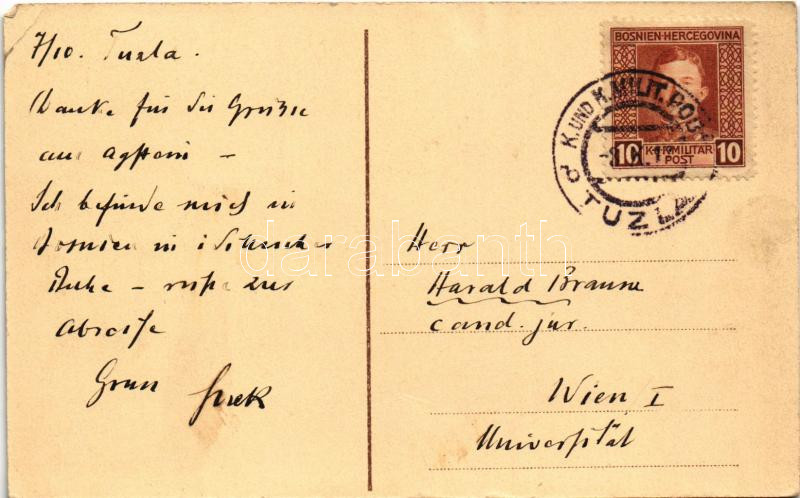 7/10. Tuzla.
Danke für die Grüsse
aus
Ich befinde mich in
Bosnien in idillischer
Ruhe –
Abreise
Gruss
BOSNIEN-HERCEGOVINA
10 K.u.K. MILITÄR POST 10
K. UND K. MILIT. POST
TUZLA
darabanth
Herr
Harald Braune
cand. jur.
Wien I
Universität